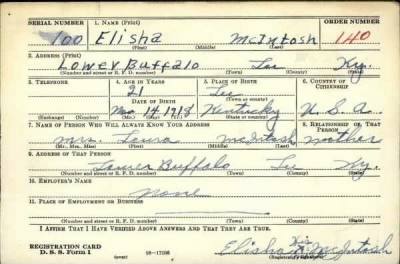 SERIAL NUMBER 1. NAME (Print) ORDER NUMBER
100 Elisha McIntosh 140
(First) (Middle) (Last)
2. ADDRESS (Print)
Lower Buffalo Lee Ky.
(Number and street or R. F. D. number) (Town) (County) (State)
3. TELEPHONE 4. AGE IN YEARS 5. PLACE OF BIRTH 6. COUNTRY OF CITIZENSHIP
21 Lee
DATE OF BIRTH (Town or county)
14 1918 Kentucky U. S. A.
(Exchange) (Number) (Mo.) (Day) (Yr.) (State or country)
7. NAME OF PERSON WHO WILL ALWAYS KNOW YOUR ADDRESS 8. RELATIONSHIP OF THAT PERSON
Mrs. Laura McIntosh mother
(Mr., Mrs., Miss) (First) (Middle) (Last)
9. ADDRESS OF THAT PERSON
Lower Buffalo Lee Ky.
(Number and street or R. F. D. number) (Town) (County) (State)
10. EMPLOYER'S NAME
None
11. PLACE OF EMPLOYMENT OR BUSINESS
(Number and street or R. F. D. number) (Town) (County) (State)
I AFFIRM THAT I HAVE VERIFIED ABOVE ANSWERS AND THAT THEY ARE TRUE.
REGISTRATION CARD
D. S. S. Form 1 (over) 16—17105
His
Elisha McIntosh
(Registrant's signature)